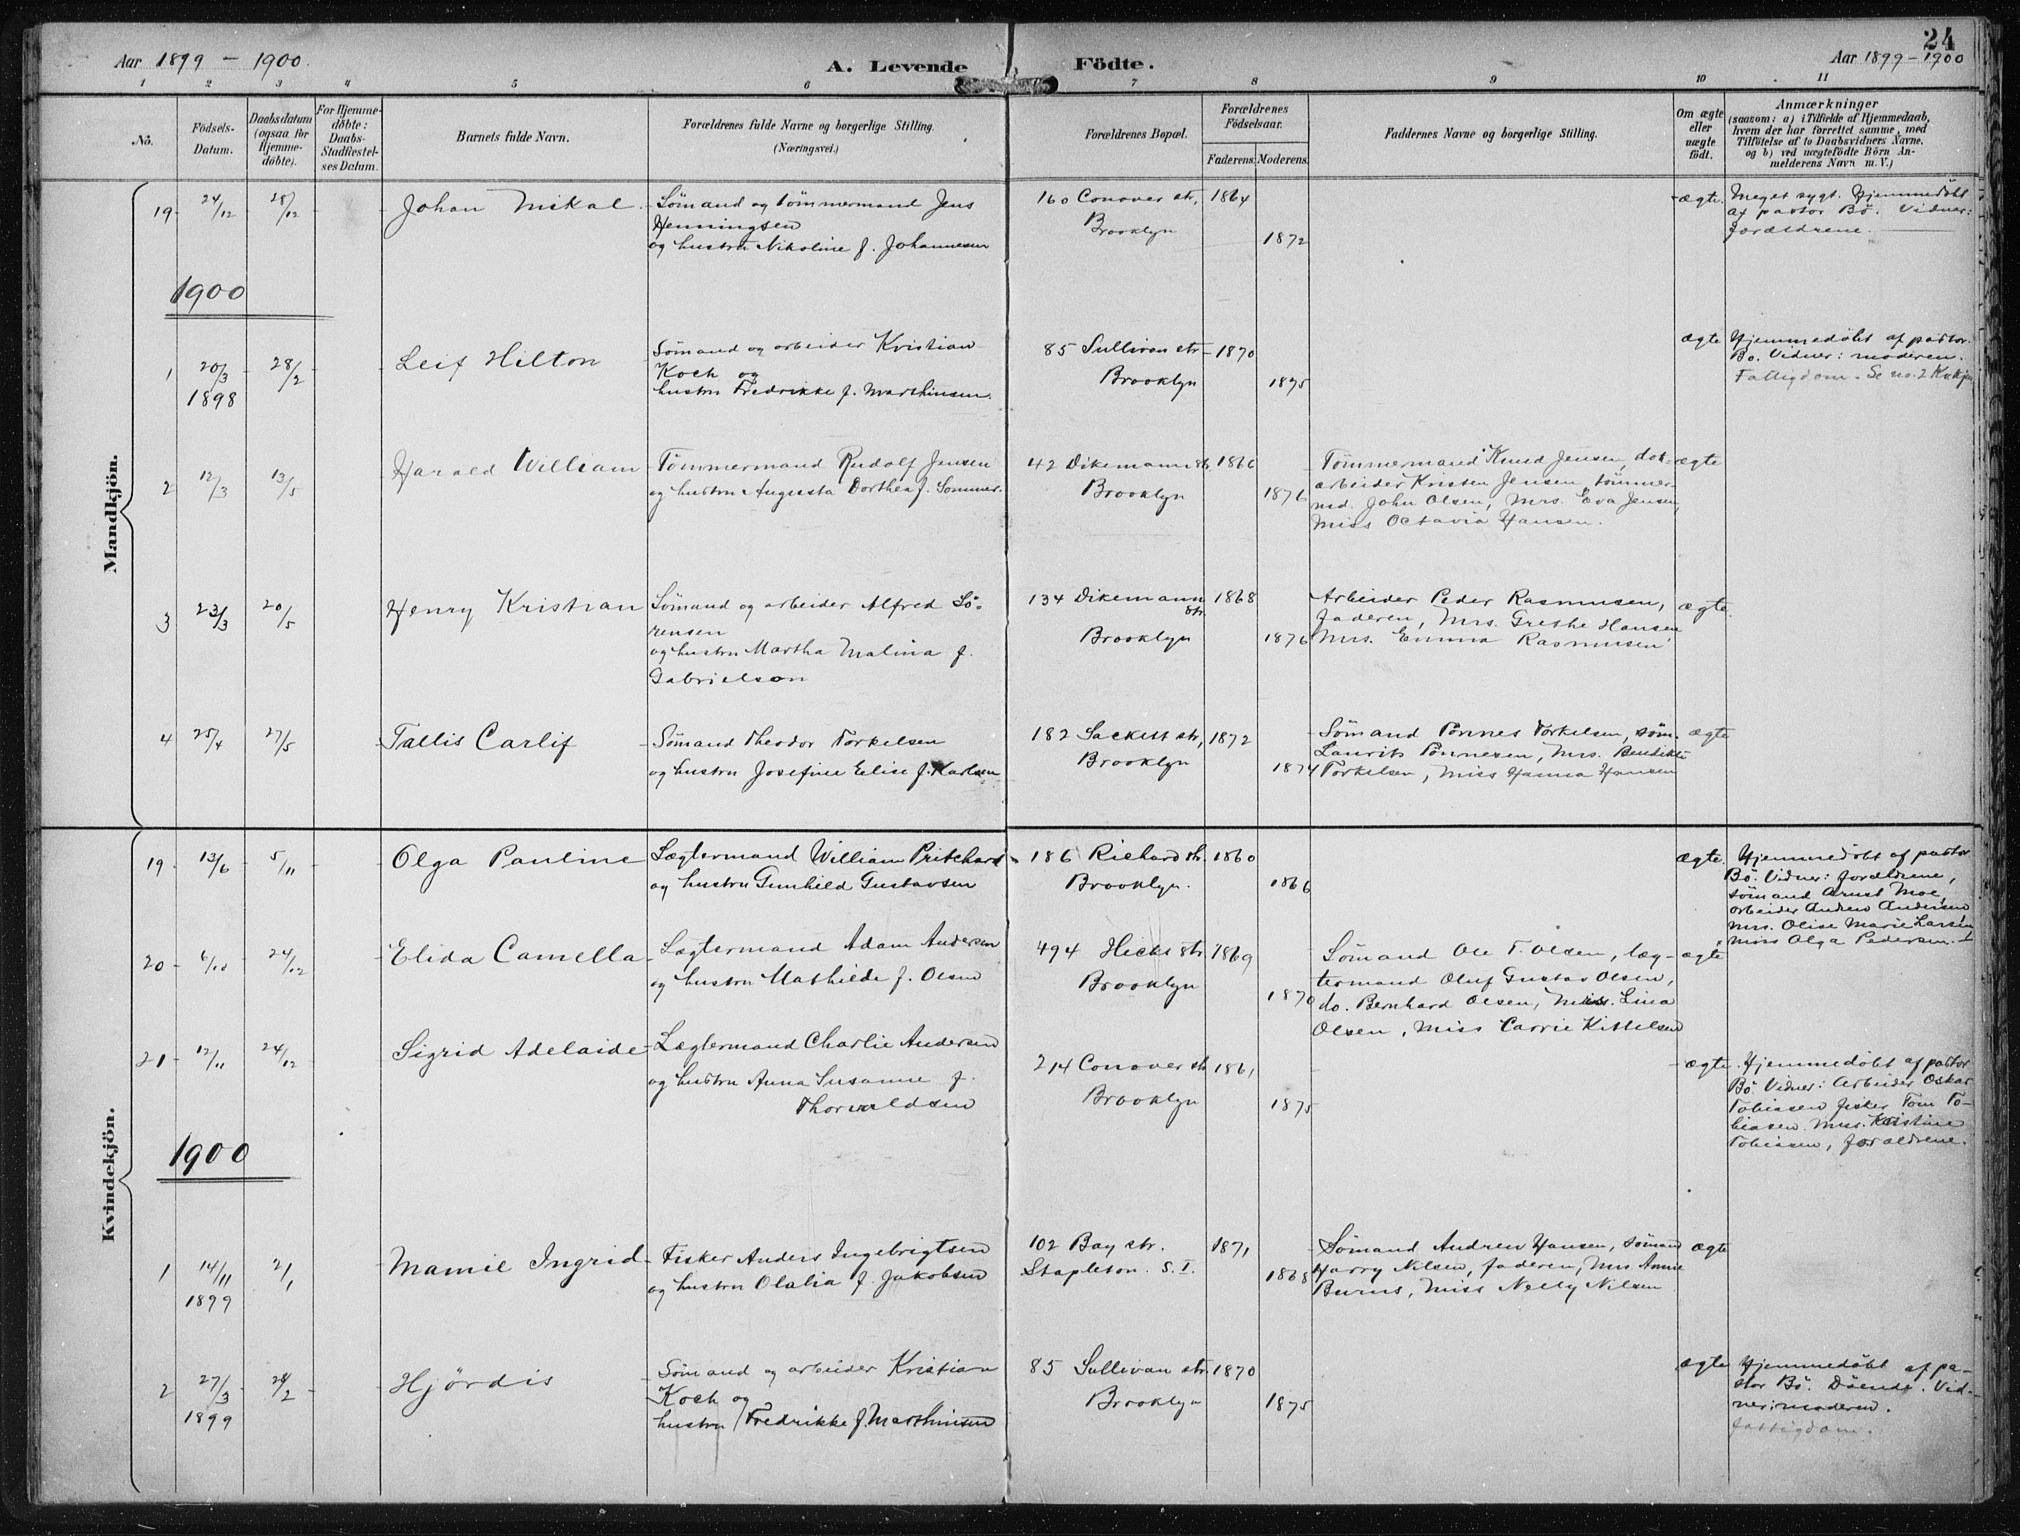 24
Aar 1899 - 1900.
A. Levende Födte.
Aar 1899 - 1900
1 2 3 4 5 6 7 8 9 10 11
No.
Födsels-
Datum.
Daabsdatum
(ogsaa for
Hjemme-
döbte).
For Hjemme-
döbte:
Daabs-
Stadfæstel-
ses Datum.
Barnets fulde Navn.
Forældrenes fulde Navne og borgerlige Stilling.
(Næringsvei.)
Forældrenes Bopæl.
Forældrenes
Födselsaar.
Faderens. Moderens.
Faddernes Navne og borgerlige Stilling.
Om ægte
eller
uægte
født.
Anmærkninger
(saasom: a) i Tilfælde af Hjemmedaab,
hvem der har forrettet samme, med
Tilföielse af to Daabsvidners Navne,
og b) ved uægtefödte Börn An-
melderens Navn m. V.)
Mandkjön.
19 24/12 28/12 Johan Mikal
Sömand og Tömmermand Jens
Henningsen
og hustru Nikoline f. Johannesen
160 Conover str,
Brooklyn
1864
1872
ægte.
Meget sygt. Hjemmedöbt
af pastor Bö. Vidner:
forældrene.
1900
1 20/3 28/2 Leif Hilton
1898
Sömand og arbeider Kristian
Koch og
hustru Fredrikke f. Marthinsen.
85 Sullivan str
Brooklyn
1870
1875
ægte
Hjemmedöbt af pastor
Bö. Vidner: moderen.
Fattigdom. Se no. 2
2 12/3 13/5 Harald William
Tömmermand Rudolf Jensen
og hustru Augusta Dorthea f. Sommer.
42 Dikemann str.
Brooklyn
1866
1876
Tömmermand Knud Jensen, dok-
arbeider Kristen Jensen, tömmer-
md. John Olsen, Mrs. Eva Jensen,
Miss Octavia Hansen.
ægte
3 23/3 20/5 Henry Kristian
Sömand og arbeider Alfred Sö-
rensen
og hustru Martha Malina f.
Gabrielson
134 Dikemann
str.
Brooklyn
1868
1876
Arbeider Peder Rasmusen,
faderen, Mrs. Grethe Hansen
Mrs. Emma Rasmusen
ægte
4 25/4 27/5 Tallis Carlif
Sömand Theodor Torkelsen
og hustru Josefine Elise f. Karlsen
182 Sackett str,
Brooklyn
1872
1874
Sömand Tönnes Torkelsen, söm.
Laurits Tönnesen, Mrs. Bendikte
Torkelsen, Miss Hanna Hansen
ægte
Kvindekjön.
19 13/6 5/11 Olga Pauline
Lægtermand William Pritchard
og hustru Gunhild Gustavsen
186 Richard str.
Brooklyn.
1860
1866
ægte.
Hjemmedöbt af pastor
Bö. Vidner: forældrene,
sömand Arnst Moe,
arbeider Andreas Andersen
Mrs. Olise Marie Larsen
Miss Olga Pedersen.
20 6/10 24/12 Elida Camella
Lægtermand Adam Andersen
og hustru Mathilde f. Olsen
494 Hicks str.
Brooklyn
1869
1870
Sömand Ole T. Olsen, læg-
termand Oluf Gustav Olsen,
do. Bernhard Olsen, Miss. Lina
Olsen, Miss Carrie Kittelsen
ægte
21 12/11 24/12 Sigrid Adelaide
Lægtermand Charlie Andersen
og hustru Anna Susanne f.
Thorvaldsen
214 Conover str
Brooklyn
1861
1875
ægte.
Hjemmedöbt af pastor
Bö Vidner: Arbeider Oskar
Tobiasen fisker Tom To-
biasen. Mrs. Kristine
Tobiasen, forældrene.
1900
1 14/11 2/1 Mamie Ingrid
1899
Fisker Anders Ingebrigtsen
og hustru Olalia f. Jakobsen
102 Bay str.
Stapleton. S. I.
1871
1868
Sömand Andrew Hansen, sömand
Harry Nilsen, faderen, Mrs Annie
Burns, Miss Nelly Nilsen
ægte
2 27/3 24/2 Hjördis
1899
Sömand og arbeider Kristian
Koch og
hustru Fredrikke f. Marthinsen
85 Sullivan str.
Brooklyn
1870
1875
ægte
Hjemmedöbt af pa-
stor Bö. Döende. Vid-
ner: moderen.
fattigdom.